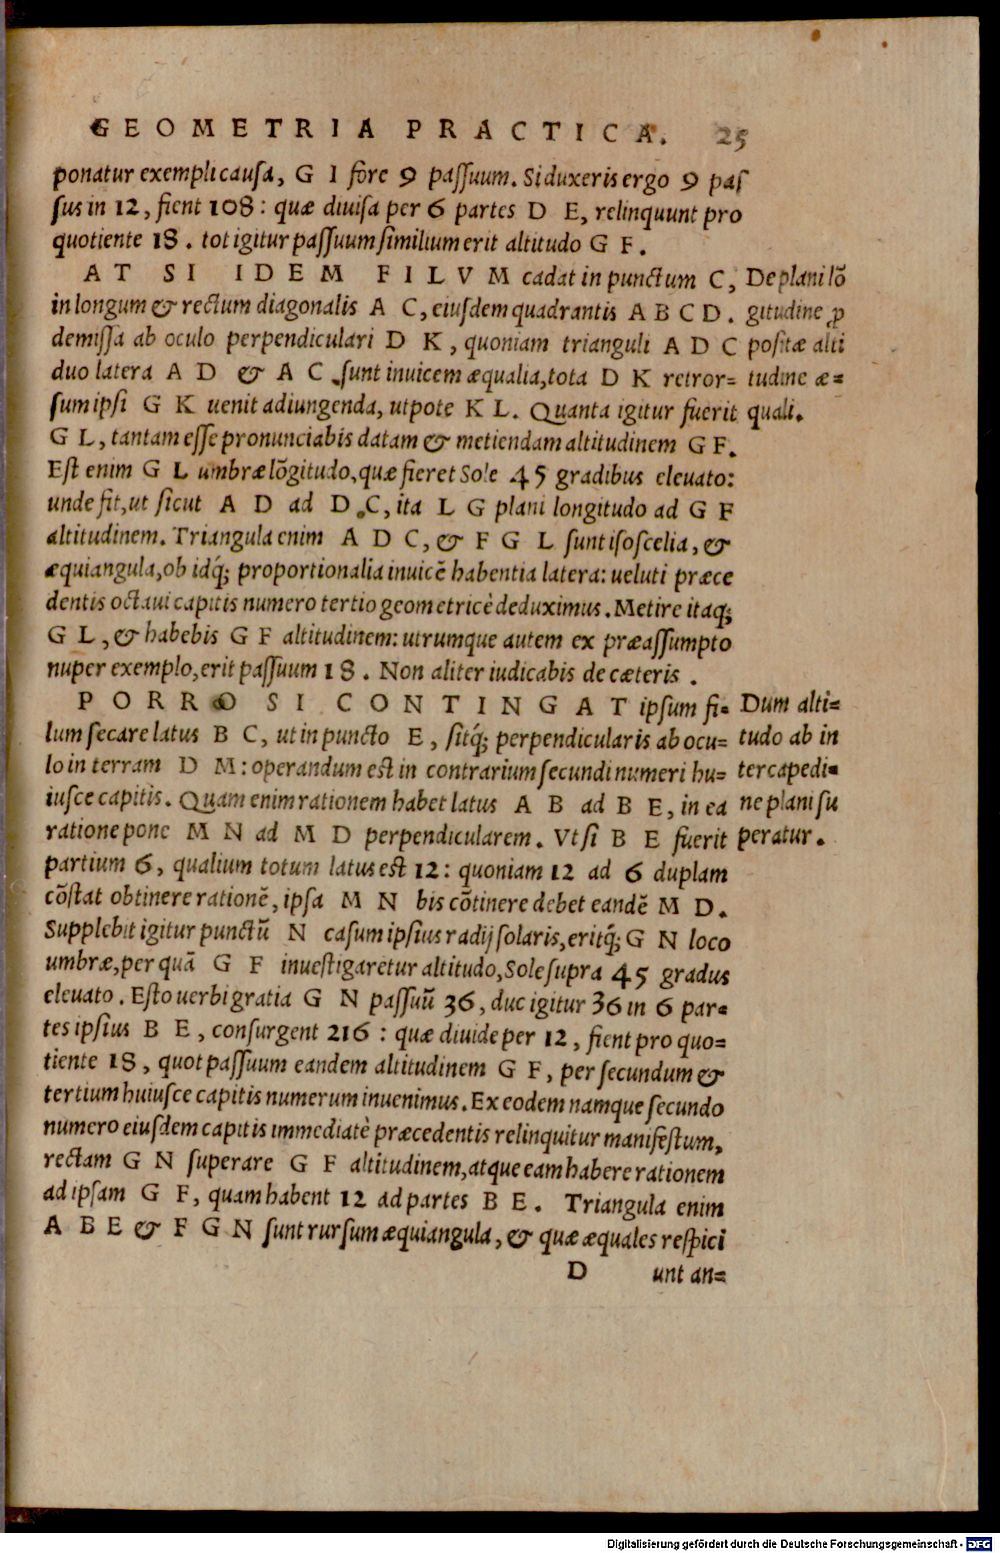 GEOMETRIA PRACTICA. 25
ponatur exempli causa, G I fore 9 passuum. Si duxeris ergo 9 pas
sus in 12, fient 108: quæ diuisa per 6 partes D E, relinquunt pro
quotiente 18. tot igitur passuum similium erit altitudo G F.
AT SI IDEM FILVM cadat in punctum C,
in longum & rectum diagonalis A C, eiusdem quadrantis A B C D.
demissa ab oculo perpendiculari D K, quoniam trianguli A D C
duo latera A D & A C sunt inuicem æqualia, tota D K retror=
sum ipsi G K uenit adiungenda, utpote K L. Quanta igitur fuerit
G L, tantam esse pronunciabis datam & metiendam altitudinem G F.
Est enim G L umbræ lõgitudo, quæ fieret Sole 45 gradibus eleuato:
unde fit, ut sicut A D ad D C, ita L G plani longitudo ad G F
altitudinem. Triangula enim A D C, & F G L sunt isoscelia, &
æquiangula, ob idq́; proportionalia inuicẽ habentia latera: ueluti præce
dentis octaui capitis numero tertio geometricè deduximus. Metire itaq;
G L, & habebis G F altitudinem: utrumque autem ex præassumpto
nuper exemplo, erit passuum 18. Non aliter iudicabis de cæteris.
De plani lõ
gitudine ꝓ
positæ alti
tudine æ=
quali.
PORRO SI CONTINGAT ipsum fi=
lum secare latus B C, ut in puncto E, sitq́; perpendicularis ab ocu=
lo in terram D M: operandum est in contrarium secundi numeri hu=
iusce capitis. Quam enim rationem habet latus A B ad B E, in ea
ratione pone M N ad M D perpendicularem. Vt si B E fuerit
partium 6, qualium totum latus est 12: quoniam 12 ad 6 duplam
cõstat obtinere rationẽ, ipsa M N bis cõtinere debet eandẽ M D.
Supplebit igitur punctũ N casum ipsius radij solaris, eritq́; G N loco
umbræ, per quã G F inuestigaretur altitudo, Sole supra 45 gradus
eleuato. Esto uerbi gratia G N passuũ 36, duc igitur 36 in 6 par=
tes ipsius B E, consurgent 216: quæ diuide per 12, fient pro quo=
tiente 18, quot passuum eandem altitudinem G F, per secundum &
tertium huiusce capitis numerum inuenimus. Ex eodem namque secundo
numero eiusdem capitis immediatè præcedentis relinquitur manifestum,
rectam G N superare G F altitudinem, atque eam habere rationem
ad ipsam G F, quam habent 12 ad partes B E. Triangula enim
A B E & F G N sunt rursum æquiangula, & quæ æquales respici
Dum alti=
tudo ab in
tercapedi=
ne plani su
peratur.
D unt an=
Digitalisierung gefördert durch die Deutsche Forschungsgemeinschaft - DFG